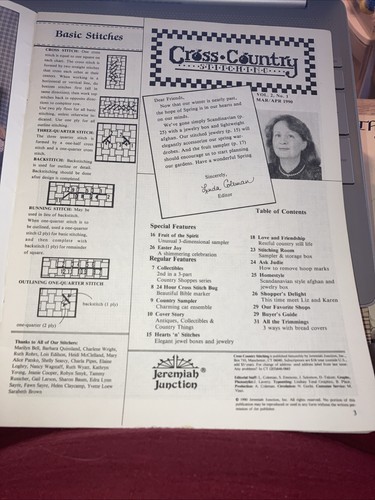 Basic Stitches
CROSS STITCH: One cross
stitch is equal to one square on
each chart. The cross stitch is
formed by two straight stitches
that cross each other at their
center. When working in a
horizontal or vertical line, do
bottom stitches first left to
THREE-QUARTER STITCH:
The three quarter stitch is
formed by a one-half cross
stitch and a one-quarter cross
stitch.
BACKSTITCH: Backstitching
is used for outline or detail.
Backstitching should be done
after design is completed.
RUNNING STITCH: May be
used in lieu of backstitch.
When one-quarter stitch is to
be outlined, used a one-quarter
stitch (2 ply) for basic stitching,
and then complete with
backstitch (1 ply) for remainder
of square.
OUTLINING ONE-QUARTER STITCH
backstitch (1 ply)
one-quarter (2 ply)
Thanks to All of Our Stitchers:
Marilyn Bell, Barbara Quintiland, Charlene Wright,
Ruth Robin, Lois Edison, Heidi McClelland, Mary
Alice Patsko, Shelly Seavey, Charla Pipes, Elaine
Legféry, Nancy Wagstaff, Ruth Wyan, Kathryn
Ewing, Jennie Cooper, Robyn Smyk, Tammy
Rosecher, Gail Larson, Sharon Baum, Edra Lynn
Sayre, Fawn Sayre, Helen Claycamp, Yvette Lowe
Sarabeth Brown
Cross Country
STITCHING
VOL. 2, No. 1
MAR/APR 1990
Dear Friends,
Now that our winter is nearly past,
the hope of Spring is in our hearts and
on our minds.
We've gone simply Scandinavian (p.
25) with a jewelry box and lightweight
afghan. Our stitched jewelry (p. 15) will
elegantly accessorize our spring war-
drobes. And the fruit sampler (p. 17)
should encourage us to start planning
our gardens. Have a wonderful Spring
Linda Coleman
Editor
Table of Contents
Special Features
16 Fruit of the Spirit
Unusual 3-dimensional sampler
26 Easter Joy
A shimmering celebration
Regular Features
7 Collectibles
2nd in a 5-part
Country Shoppes series
8 24 Hour Cross Stitch Bug
Beautiful Bible marker
9 Country Sampler
Charming car ensemble
10 Cover Story
Antiques, Collectibles &
Country Things
15 Hearts 'n' Stitches
Elegant jewel boxes and jewelry
18 Love and Friendship
Restful country still life
23 Stitching Room
Sampler & storage box
24 Ask Jodie
How to remove hoop marks
25 Homestyle
Scandinavian style afghan and
jewelry box
26 Shopper's Delight
This time meet Liz and Karen
29 Our Favorite Shops
29 Buyer's Guide
31 All the Trimmings
3 ways with bread covers
Jeremiah
Junction
© 1990 Jeremiah Junction, Inc. All rights reserved. No portion of this
publication may be reproduced or used in any form without the written per-
mission of the publisher.
3